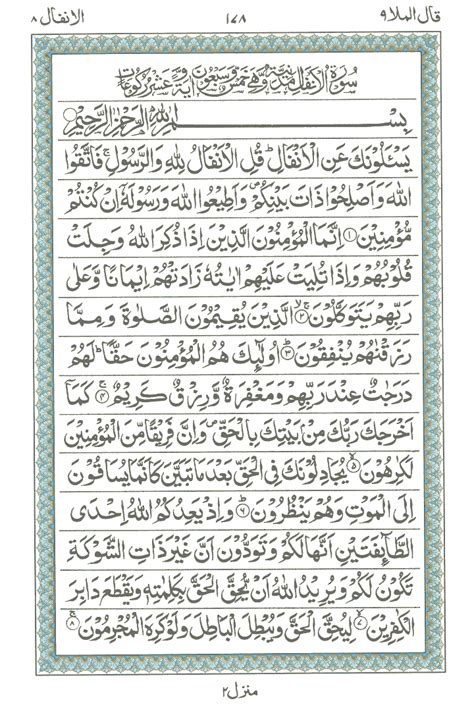 قال الملا ٩ ١٧٨ الانفال ٨
سُوْرَةُ الْاَنْفَالِ مَدَنِيَّةٌ وَّهِيَ خَمْسٌ وَّسَبْعُوْنَ اٰيَةً وَّعَشْرُ رُكُوْعَاتٍ
بِسْمِ اللّٰهِ الرَّحْمٰنِ الرَّحِيْمِ
يَسْئَلُوْنَكَ عَنِ الْاَنْفَالِ ؕ قُلِ الْاَنْفَالُ لِلّٰهِ وَالرَّسُوْلِ ۚ فَاتَّقُوا
اللّٰهَ وَاَصْلِحُوْا ذَاتَ بَيْنِكُمْ ۪ وَاَطِيْعُوا اللّٰهَ وَرَسُوْلَهٗۤ اِنْ كُنْتُمْ
مُّؤْمِنِيْنَ ۝۱ اِنَّمَا الْمُؤْمِنُوْنَ الَّذِيْنَ اِذَا ذُكِرَ اللّٰهُ وَجِلَتْ
قُلُوْبُهُمْ وَاِذَا تُلِيَتْ عَلَيْهِمْ اٰيٰتُهٗ زَادَتْهُمْ اِيْمَانًا وَّعَلٰى
رَبِّهِمْ يَتَوَكَّلُوْنَ ۝۲ الَّذِيْنَ يُقِيْمُوْنَ الصَّلٰوةَ وَمِمَّا
رَزَقْنٰهُمْ يُنْفِقُوْنَ ۝۳ اُولٰٓئِكَ هُمُ الْمُؤْمِنُوْنَ حَقًّا ؕ لَهُمْ
دَرَجٰتٌ عِنْدَ رَبِّهِمْ وَمَغْفِرَةٌ وَّرِزْقٌ كَرِيْمٌ ۝۴ كَمَاۤ
اَخْرَجَكَ رَبُّكَ مِنْۢ بَيْتِكَ بِالْحَقِّ ۪ وَاِنَّ فَرِيْقًا مِّنَ الْمُؤْمِنِيْنَ
لَكٰرِهُوْنَ ۝۵ يُجَادِلُوْنَكَ فِي الْحَقِّ بَعْدَ مَا تَبَيَّنَ كَاَنَّمَا يُسَاقُوْنَ
اِلَى الْمَوْتِ وَهُمْ يَنْظُرُوْنَ ۝۶ وَاِذْ يَعِدُكُمُ اللّٰهُ اِحْدَى
الطَّآئِفَتَيْنِ اَنَّهَا لَكُمْ وَتَوَدُّوْنَ اَنَّ غَيْرَ ذَاتِ الشَّوْكَةِ
تَكُوْنُ لَكُمْ وَيُرِيْدُ اللّٰهُ اَنْ يُّحِقَّ الْحَقَّ بِكَلِمٰتِهٖ وَيَقْطَعَ دَابِرَ
الْكٰفِرِيْنَ ۝۷ لِيُحِقَّ الْحَقَّ وَيُبْطِلَ الْبَاطِلَ وَلَوْ كَرِهَ الْمُجْرِمُوْنَ ۝۸
منزل ۲